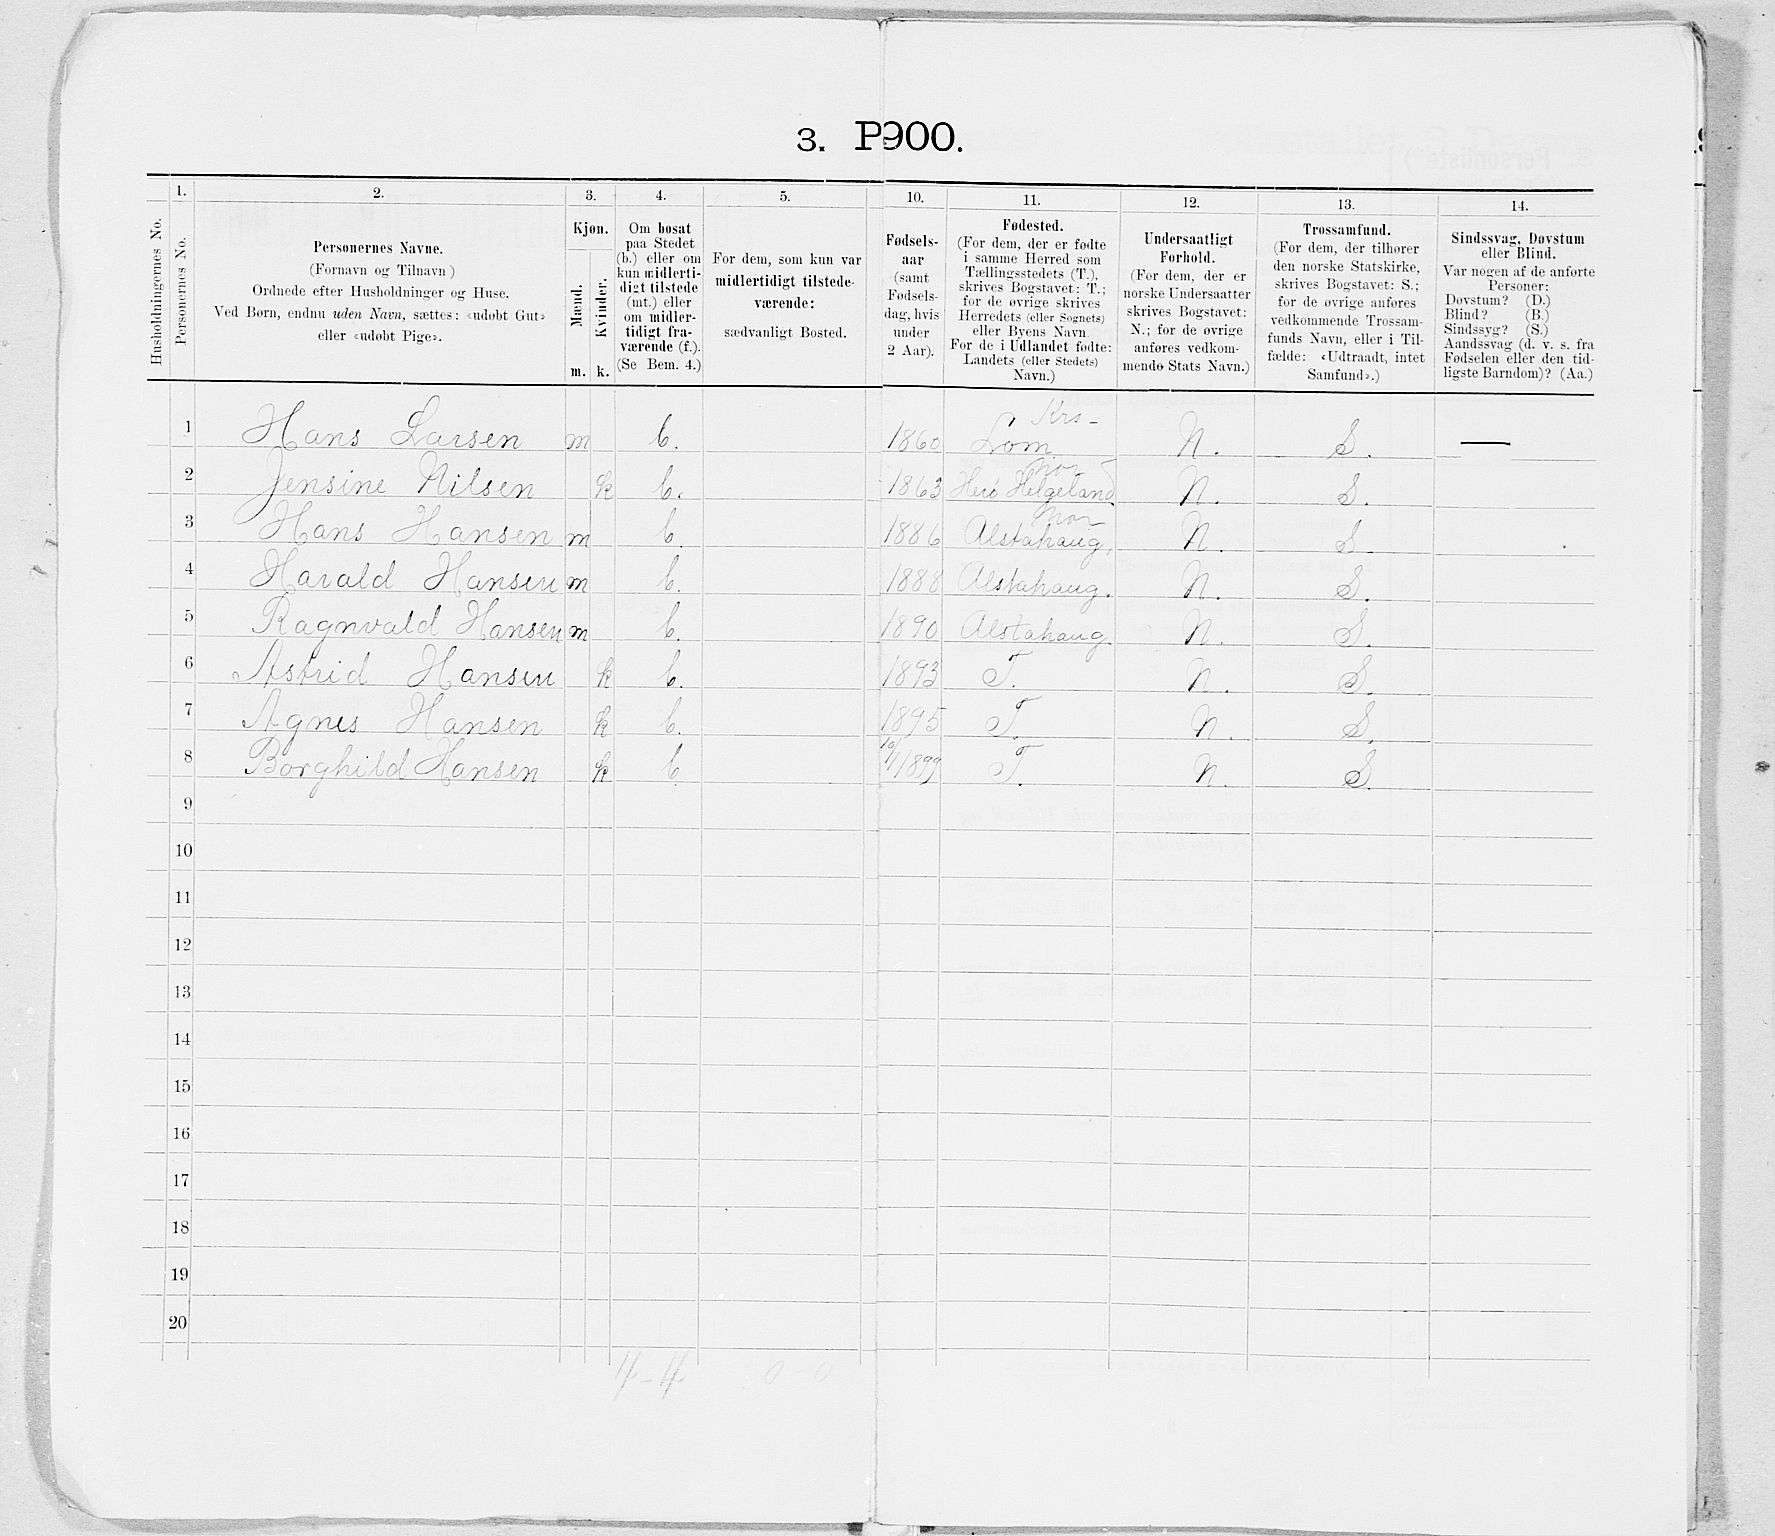 3. P900.
Husholdningernes No.
1.
Personernes No.
2.
Personernes Navne.
(Fornavn og Tilnavn)
Ordnede efter Husholdninger og Huse.
Ved Børn, endnu uden Navn, sættes: «udøbt Gut»
eller «udøbt Pige».
3.
Kjøn.
Mænd.
Kvinder.
m. k.
4.
Om bosat
paa Stedet
(b.) eller om
kun midlerti-
digt tilstede
(mt.) eller
om midler-
tidigt fra-
værende (f.).
(Se Bem. 4.)
5.
For dem, som kun var
midlertidigt tilstede-
værende:
sædvanligt Bosted.
10.
Fødsels-
aar
(samt
Fødsels-
dag, hvis
under
2 Aar).
11.
Fødested.
(For dem, der er fødte
i samme Herred som
Tællingsstedets (T.),
skrives Bogstavet: T.;
for de øvrige skrives
Herredets (eller Sognets)
eller Byens Navn
For de i Udlandet fødte:
Landets (eller Stedets)
Navn.)
12.
Undersaatligt
Forhold.
(For dem, der er
norske Undersaatter
skrives Bogstavet:
N.; for de øvrige
anføres vedkom-
mende Stats Navn.)
13.
Trossamfund.
(For dem, der tilhører
den norske Statskirke,
skrives Bogstavet: S.;
for de øvrige anføres
vedkommende Trossam-
funds Navn, eller i Til-
fælde: «Udtraadt, intet
Samfund».)
14.
Sindssvag, Døvstum
eller Blind.
Var nogen af de anførte
Personer:
Døvstum? (D.)
Blind? (B.)
Sindssyg? (S.)
Aandssvag (d. v. s. fra
Fødselen eller den tid-
ligste Barndom)? (Aa.)
Krs-
1 Hans Larsen m b. 1860 Lom N. S. —
Nor
2 Jensine Nilsen k b. 1863 Herø Helgeland N. S.
Nor
3 Hans Hansen m b. 1886 Alstahaug, N. S.
4 Harald Hansen m b. 1888 Alstahaug. N. S.
5 Ragnvald Hansen m b. 1890 Alstahaug N. S.
6 Astrid Hansen k b. 1893 T. N. S.
7 Agnes Hansen k b. 1895 T. N. S.
8 Borghild Hansen k b. 1899 T. N. S.
9
10
11
12
13
14
15
16
17
18
19
20
4-4 0-0